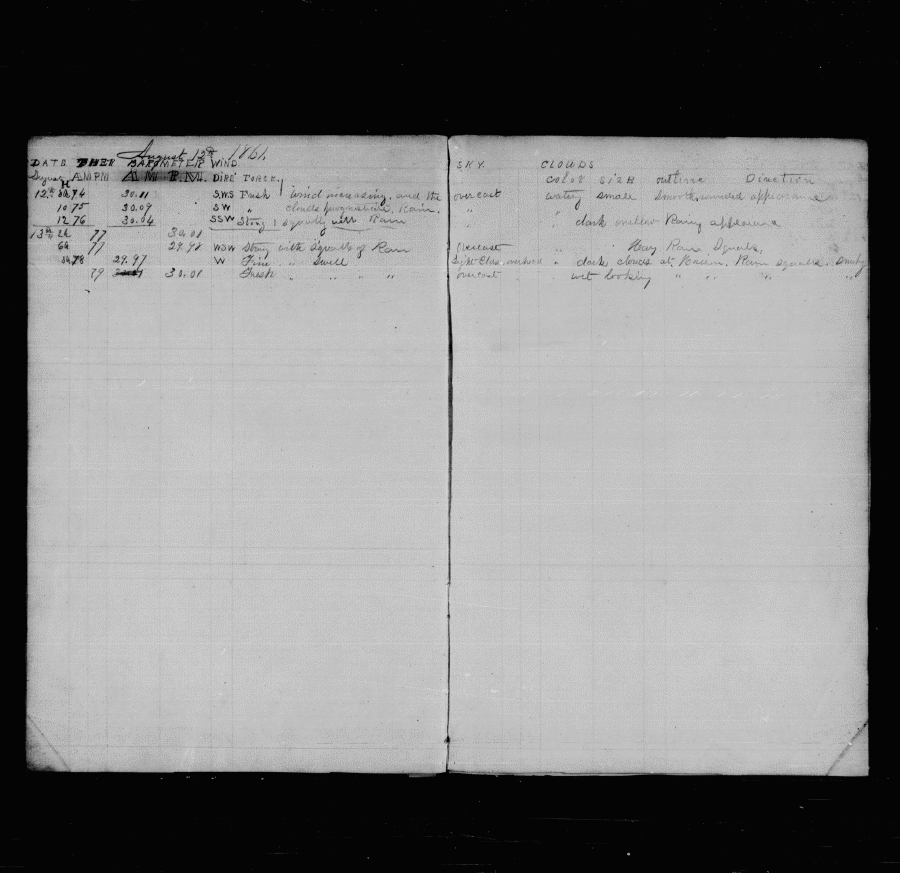 August 12th 1861.
DATE THER BAROMETER WIND SKY CLOUDS
August H AM PM AM P.M. DIRE FORCE color SIZE outline Direction
12th 74 30.11 S.W.S Fresh wind increasing, and the overcast watery small Smooth rounded appearance
10 75 30.09 SW " clouds Rain. "
12 76 30.04 SSW Strong squally with Rain " " dark Rainy appearance
13th 77 30.00
6h 77 29.98 WSW Strong with Squalls of Rain Overcast " Heavy Rain Squalls,
78 29.97 W Fine " Swell overhead " dark clouds at Rain squalls
79 30.00 Fresh " " " " " overcast wet looking " " " "